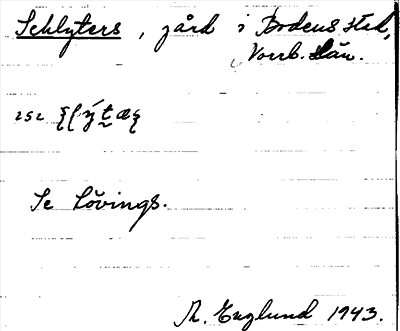 Schlyters, gård i Bodens stad,
Norrb. län.
252
Se Lövings.
R. Englund 1943.